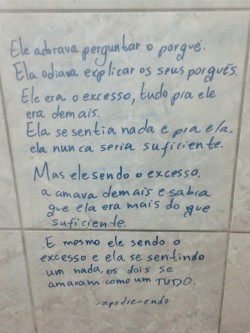 Ele adorava perguntar o porquê.
Ela odiava explicar os seus porquês.
Ele era o excesso, tudo pra ele
era demais.
Ela se sentia nada e pra ela,
ela nunca seria suficiente.
Mas ele sendo o excesso,
a amava demais e sabia
que ela era mais do que
suficiente.
E mesmo ele sendo o
excesso e ela se sentindo
um nada, os dois se
amavam como um TUDO.